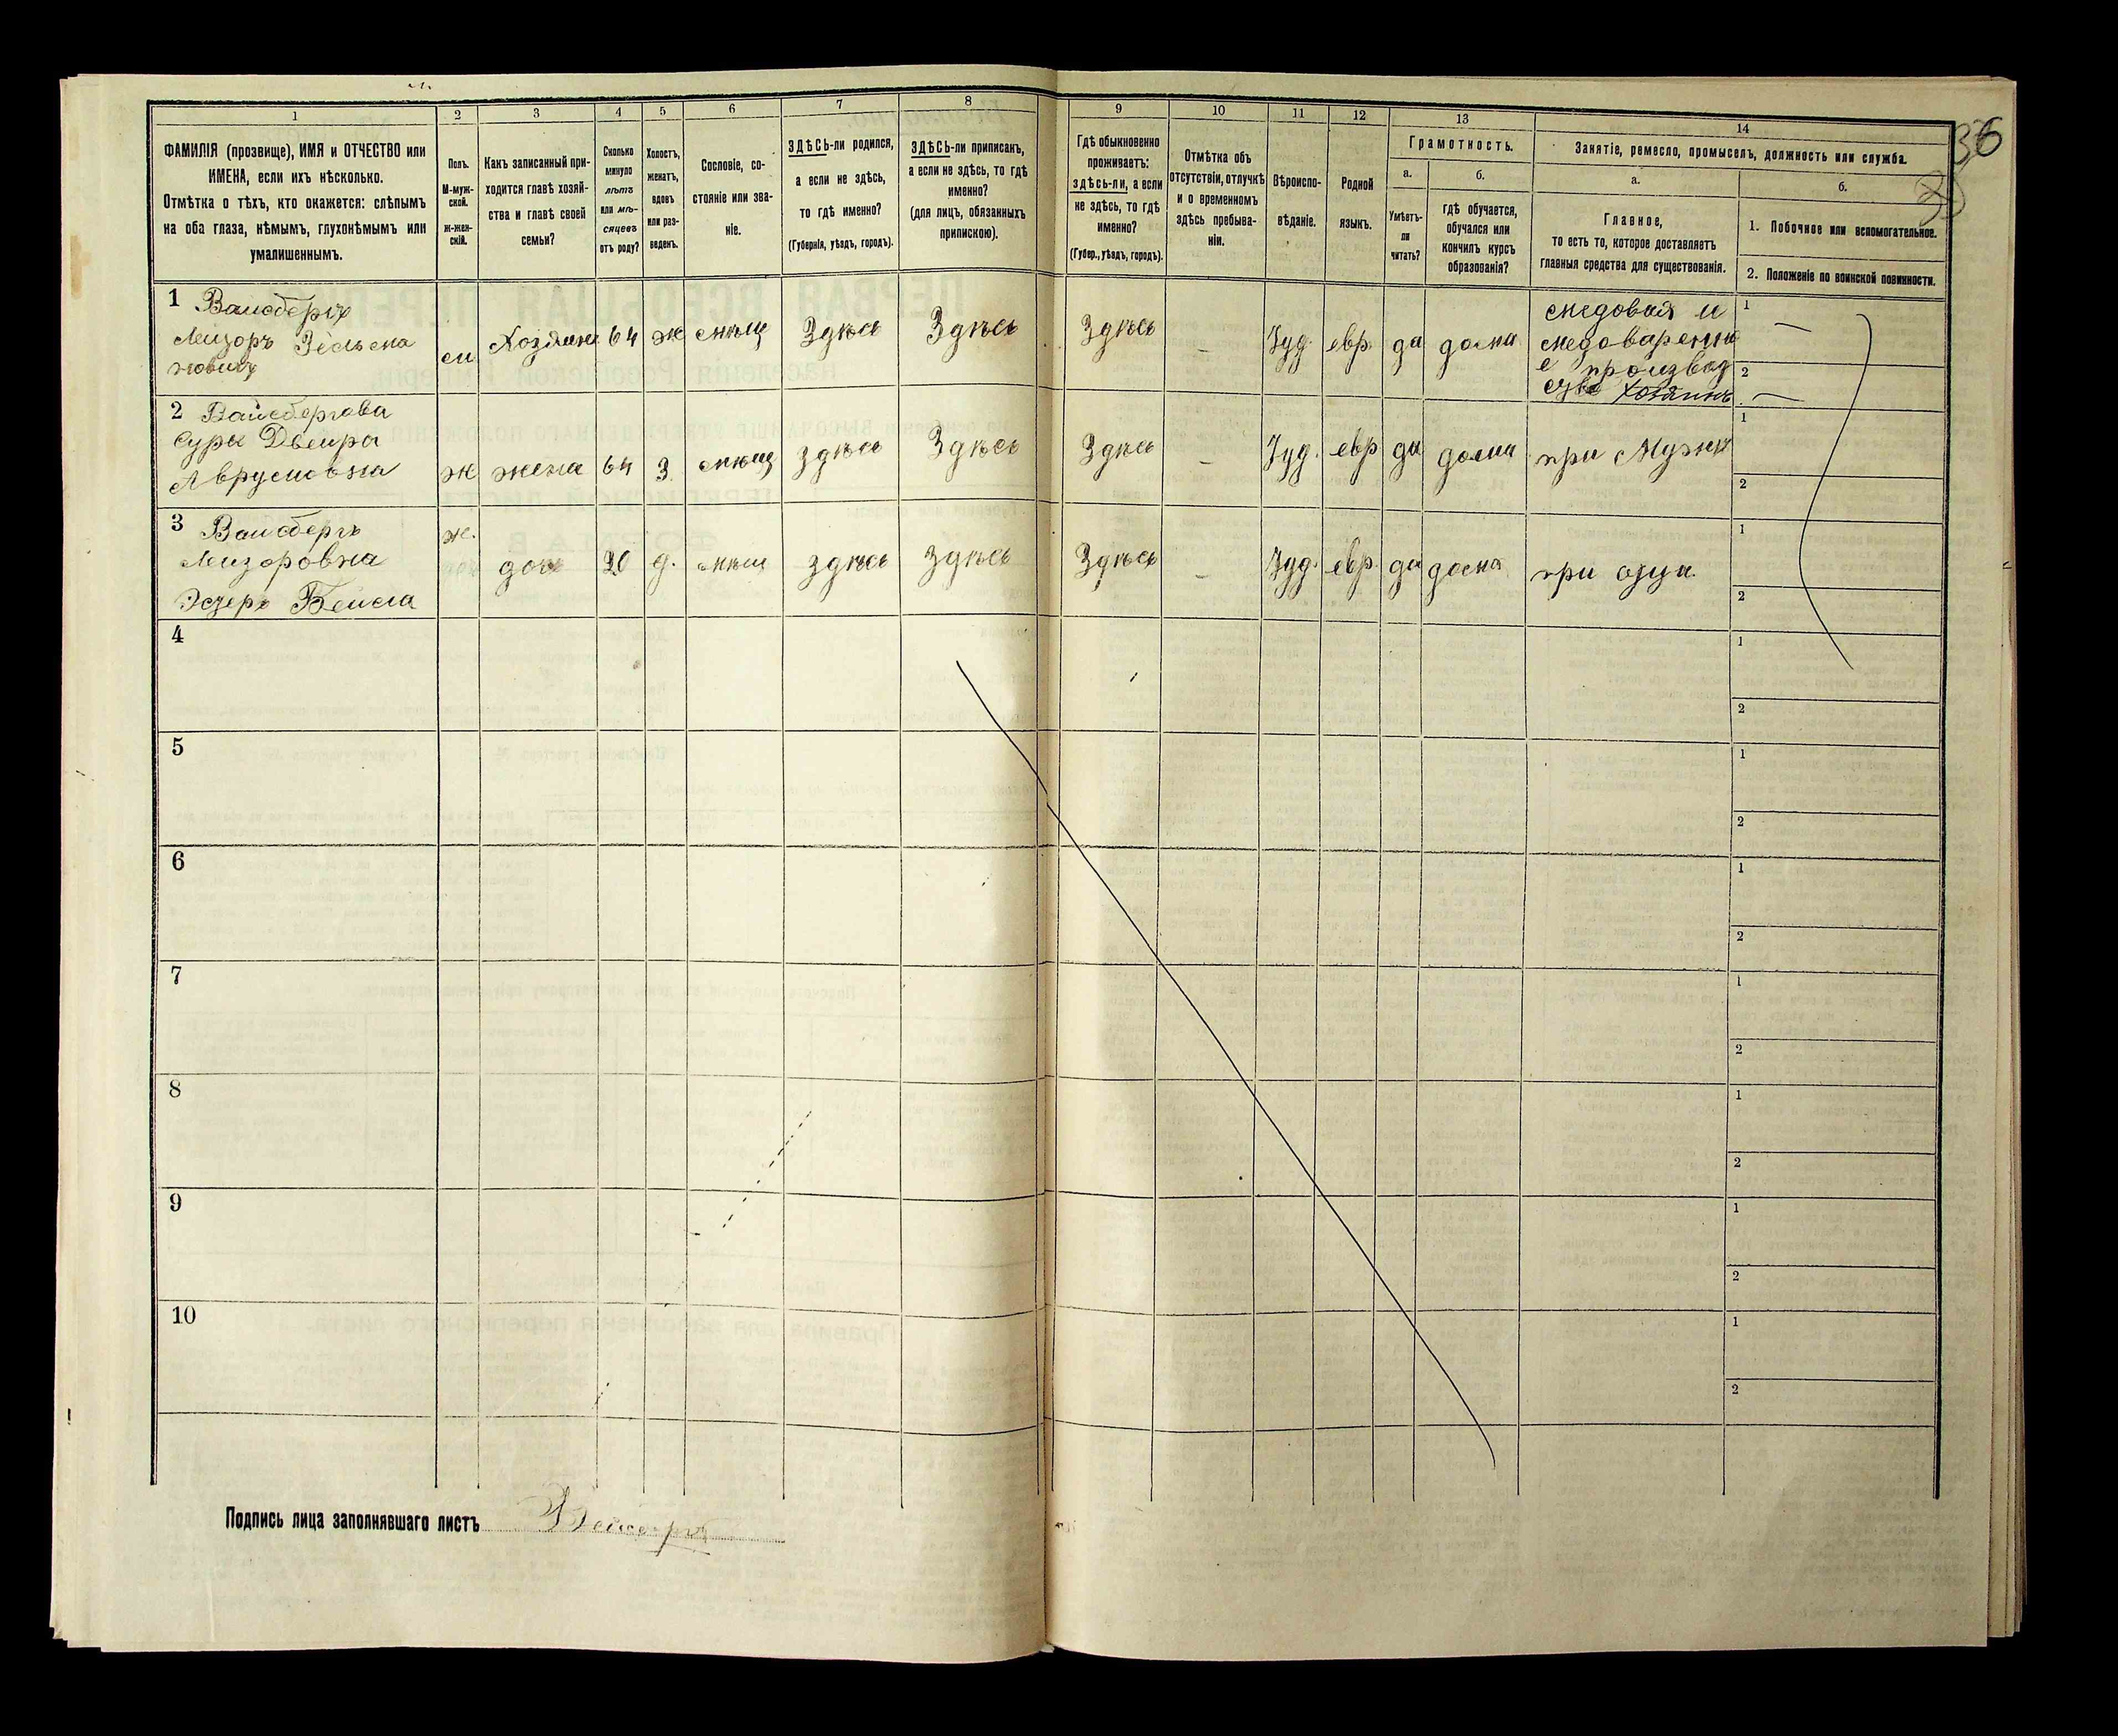 1
2
3
4
5
6
7
8
9
10
11
12
13
14
36
ФАМИЛІЯ (прозвище), ИМЯ и ОТЧЕСТВО или
ИМЕНА, если ихъ нѣсколько.
Отмѣтка о тѣхъ, кто окажется: слѣпымъ
на оба глаза, нѣмымъ, глухонѣмымъ или
умалишеннымъ.
Полъ.
М-муж-
ской.
ж-жен-
скій.
Какъ записанный при-
ходится главѣ хозяй-
ства и главѣ своей
семьи?
Сколько
минуло
лѣтъ
или мѣ-
сяцевъ
отъ роду?
Холостъ,
женатъ,
вдовъ
или раз-
веденъ.
Сословіе, со-
стояніе или зва-
ніе.
ЗДѢСЬ-ли родился,
а если не здѣсь,
то гдѣ именно?
(Губернія, уѣздъ, городъ).
ЗДѢСЬ-ли приписанъ,
а если не здѣсь, то гдѣ
именно?
(для лицъ, обязанныхъ
припискою).
Гдѣ обыкновенно
проживаетъ:
здѣсь-ли, а если
не здѣсь, то гдѣ
именно?
(Губер., уѣздъ, городъ).
Отмѣтка объ
отсутствіи, отлучкѣ
и о временномъ
здѣсь пребыва-
ніи.
Вѣроиспо-
вѣданіе.
Родной
языкъ.
Грамотность.
а.
Умѣетъ-
ли
читать?
б.
гдѣ обучается,
обучался или
кончилъ курсъ
образованія?
Занятіе, ремесло, промыселъ, должность или служба.
а.
Главное,
то есть то, которое доставляетъ
главныя средства для существованія.
б.
1. Побочное или вспомогательное.
2. Положеніе по воинской повинности.
1 Вайсбергъ
Лейзоръ Зельма
новичъ
м
Хозяинъ
64
ж
мѣщ
Здѣсь
Здѣсь
Здѣсь
–
Іуд.
евр.
да
дома
медовая и
медоваренно
е производ
ство хозяинъ
1 —
2 —
2 Вайсбергова
Сура Двейра
Аврумовна
ж
жена
64
З
мѣщ
здѣсь
Здѣсь
Здѣсь
–
Іуд.
евр
да
дома
при Мужѣ
1
2
3 Вайсбергъ
Лейзоровна
Эстеръ Бейла
ж.
дочь
20
д.
мѣщ
здѣсь
здѣсь
Здѣсь
–
Іуд.
евр.
да
дома
при отцѣ
1
2
4
1
2
5
1
2
6
1
2
7
1
2
8
1
2
9
1
2
10
1
2
Подпись лица заполнявшаго листъ